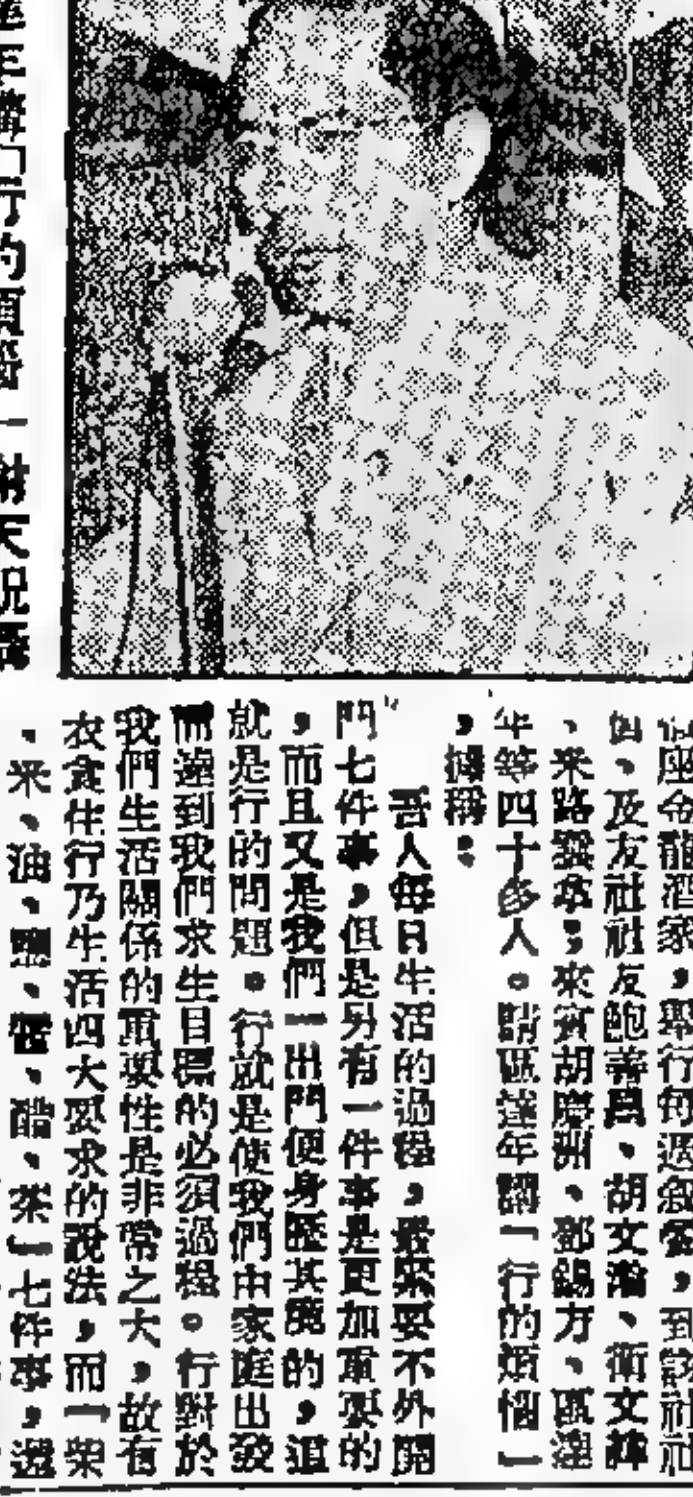 座金龍酒家，舉行每週叙會，到該社社
、及友社社友鮑善昌、胡文瀚、衛文緯
、米路發本；來賓胡慶洲、鄧錫方、區達
年等四十多人。請區達年講「行的煩惱」
，據稱：
吾人每日生活的過程，最緊要不外開
門七件事，但是另有一件事是更加重要的
，而且又是我們一出門便身歷其境的，這
就是行的問題。行就是使我們由家庭出發
而達到我們求生目標的必須過程。行對於
我們生活關係的重要性是非常之大，故有
衣食住行乃生活四大要求的說法，而「柴
、米、油、鹽、醬、醋、茶」七件事，還
達年講「行的煩惱」謝天祝攝